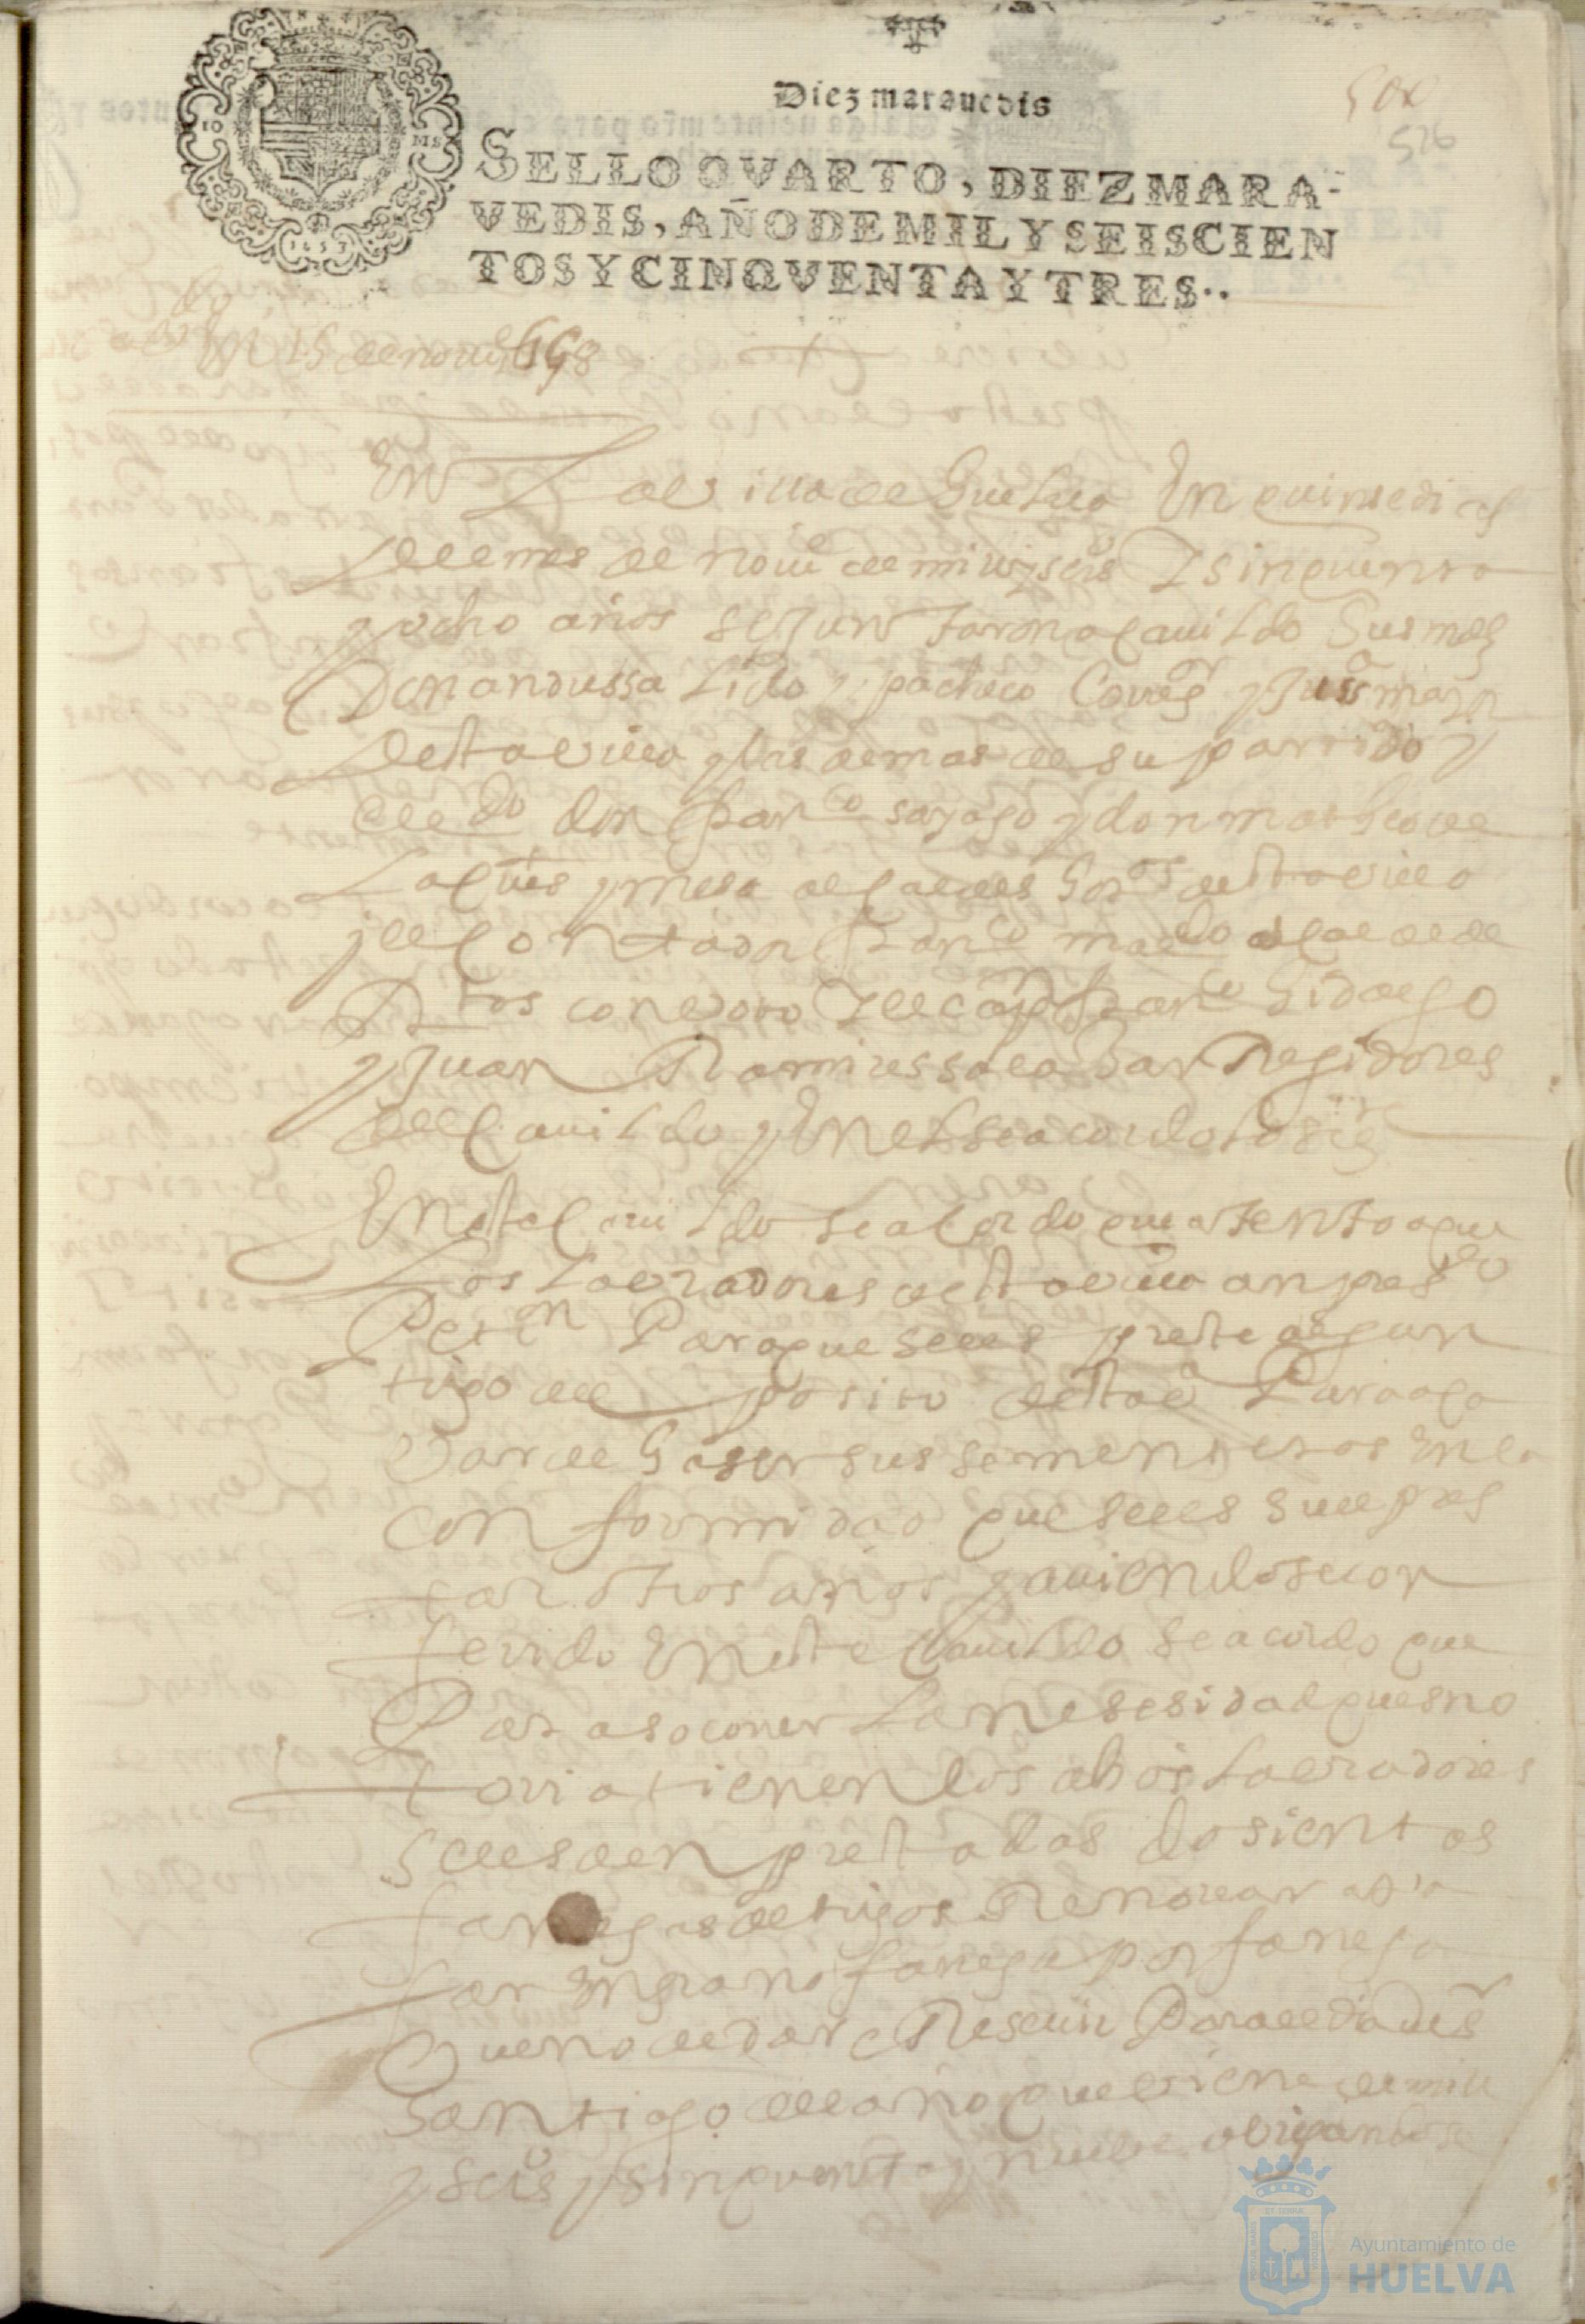 Diez marauedis
500
526
SELLO QVARTO, DIEZ MARA-
VEDIS, AÑO DE MIL Y SEISCIEN
TOS Y CINQVENTA Y TRES..
10 MS
1653
En 15 de nouie 1658
En La villa de Guelua En quinse dias
del mes de noue de mill y seisos y sinquenta
y ocho años se juntaron a cauildo Sus mds
Don andussa lido y pacheco Corror y Jusa mayor
desta villa y las demas de su partido y
el ldo don franco sayago y don matheo de
y mesa alcaldes hordos desta villa
y el contador franco maldo alcalde de
con voto y el capn franco hidalgo
y Juan Ramires salabar Regidores
del cauildo y En el se acordo lo sigte
En este cauildo se acordo que atento a que
Los labradores desta villa an presdo
Petn Para que se les preste algun
trigo del posito desta va Para aca
var de haser sus sementeras En la
conformidad que se les suele pres
tar otros años y auiendose con
ferido En este Cauildo se acordo que
Para socorrer La nesesidad que es no
toria tienen los dhos labradores
se les den prestadas dosientas
fanegas de trigo
En grano fanega por fanega
bueno de dar e Reseuir Para el dia de sr
Santiago del año que viene de mill
y seisos y sinquenta y nueve obligandose
Ayuntamiento de
HUELVA